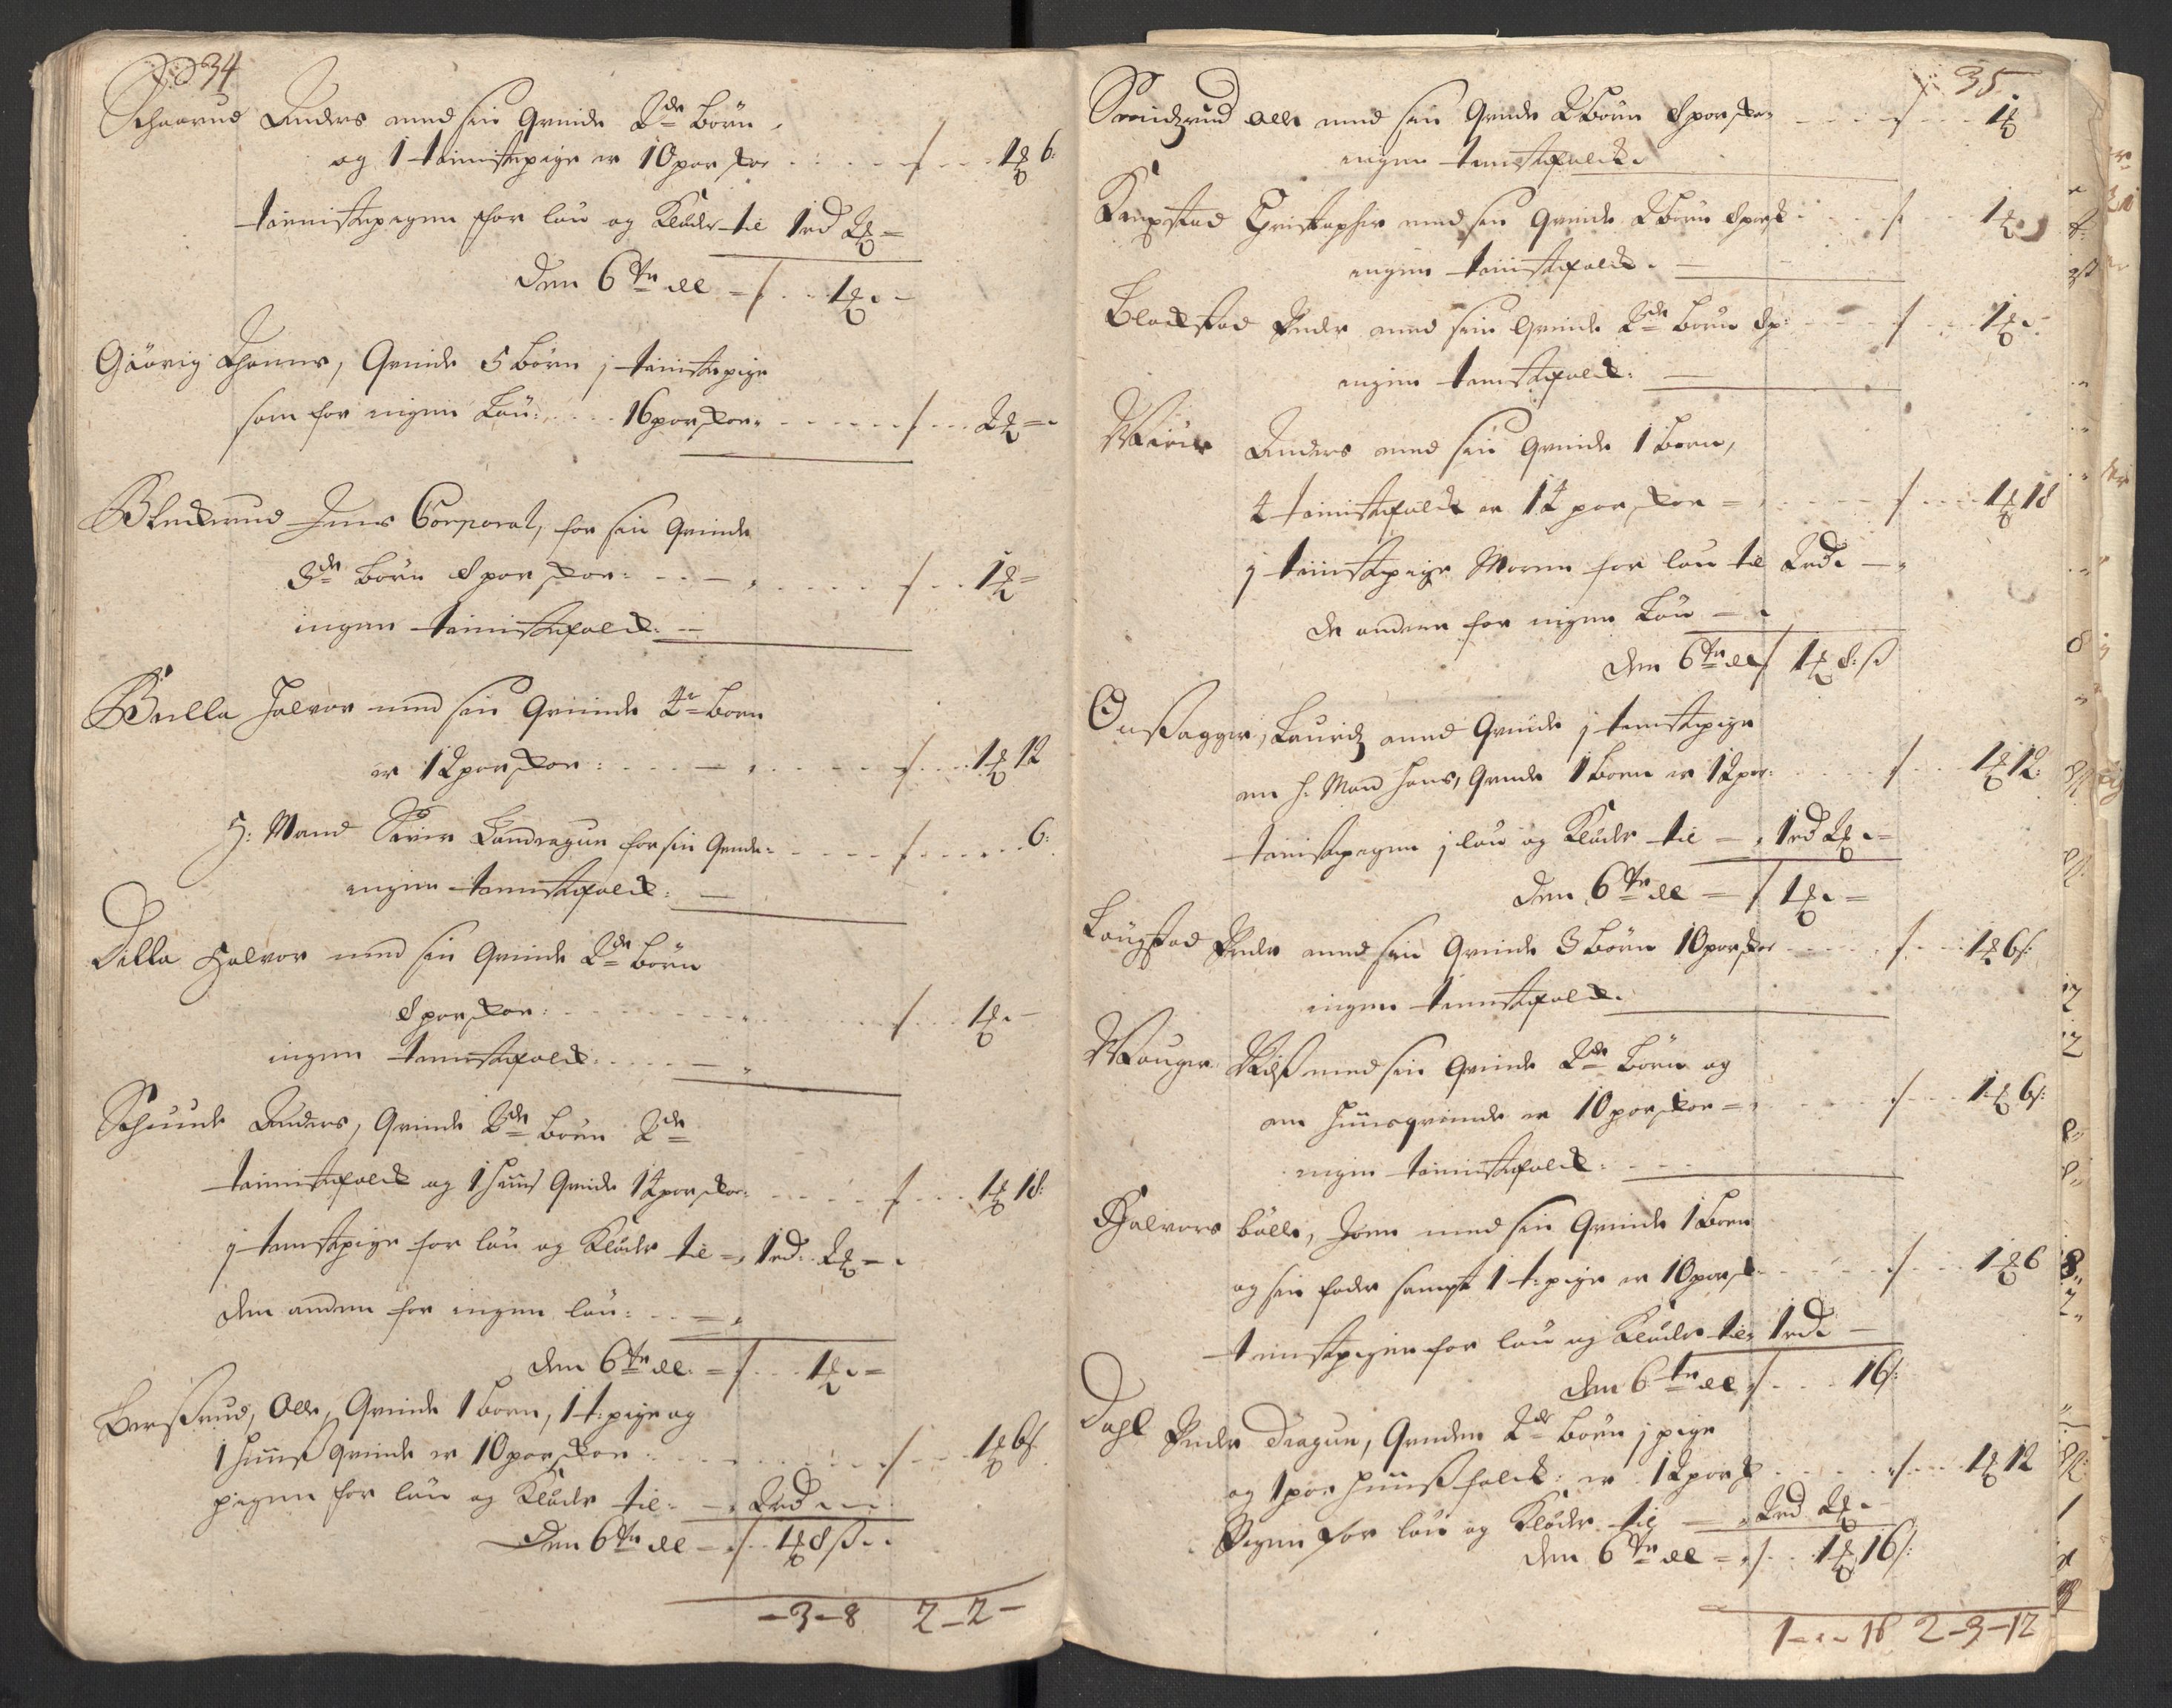 34
Schaarud Anders med sin Qvinde 2de Børn
og 1 tienistepige er 10 par skoe - - - - / - - 1 6:
tienistepigen for løn og Kleder til 1 rd 2 =
Den 6te del = / - - 1 - -
Giøvig Thommes, Qvinde 5 børn j tienistepige
som for ingen Løn: - - - 16 par skoe - - - - - / - - 2 =
Bleckerud Jens Corporal, for sin Qvinde
3de børn 8 par skoe: - - - - - / - - 1 =
ingen tienistefolck: -
Bulla Halvor med sin Qvinde 4e børn
er 12 par skoe: - - - - - / - - 1 12
H: Mand Siver Landragun for sin Qvinde: - - - - - / - - - 6:
ingen tienistefolck: -
Dilla Halvor med sin Qvinde 2de børn
8 par skoe: - - - - - / - - 1 -
ingen tienistefolck: - - -
Schinde Anders, Qvinde 2de børn 2de
tienistefolck og 1 huus Qvinde 14 par skoe: - - - - / - - 1 18:
j tienistepige for løn og Kleder til = 1 rd: 2 =
den anden for ingen løn: - - =
den 6te del: = / - - 1 - =
Berssrud, Olle, Qvinde 1 barn, 1 t: pige og
1 huuss qvinde er 10 par skoe - - - - - / - - 1 6 s
pigen for løn og Kleder til - 2 rd - -
Den 6te del - / - - 1 8 ß - -
- 3 - 8 2 - 2 -
35
Smidzrud Olle med sin Qvinde 2 børn 8 par skoe - - - - / - - 1
ingen tienistefolck
Kampstad Christopher med sin Qvinde 2 børn 8 par sk - - - / - - 1
ingen tienistefolck -
Blackstad Peder med sin Qvinde 2de børn 8 p: - - - - / - - 1 -
ingen tienistefolck: -
Anders med sin Qvinde 1 barn,
4 tienistefolck er 14 par skoe = - - - - / - - 1 18
j tienistepige Maren for løn til 2 rd -
de andre for ingen Løn - -
den 6te del / 1 8: ß
Onssagger, Lauridz med Qvinde j tienistepige
en h: Mand Hans, Qvinde 1 barn er 12 par: - - - / - - 1 12:
tienistepigen j løn og Kleder til - 1 rd 2 - =
den 6te del = / 1 - =
Løngstad Peder med sin Qvinde 3 børn 10 par skoe - - - - / - - 1 6 s:
ingen tienistefolck.
Wouger Nilss med sin Qvinde 2de børn og
en huusqvinde er 10 par skoe = - - - - / - - 1 6 s:
ingen tienistefolck: - - -
Halvors bølle, Joen med sin Qvinde 1 barn
og sin fader sampt 1 t: pige er 10 par sk - - - - / - - 1 6
tienistepigen for løn og Kleder til 1 rd -
den 6te del / - - - 16 s:
Dahl Peder Dragun, Qvinden 2de børn j pige
og 1 par huussfolck: er 12 par sk - - - - / - - 1 12
Pigen for løn og Kleder til - 2 rd 2 -
den 6te del = / - - 1 16 s:
1 - - 18 2 - 3 - 12